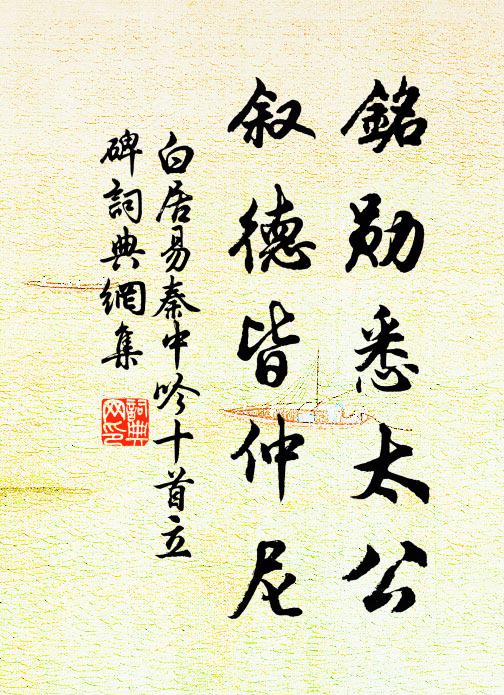 銘勋悉太公
叙德皆仲尼
白居易秦中吟十首立
碑詞典網集
詞典
网印